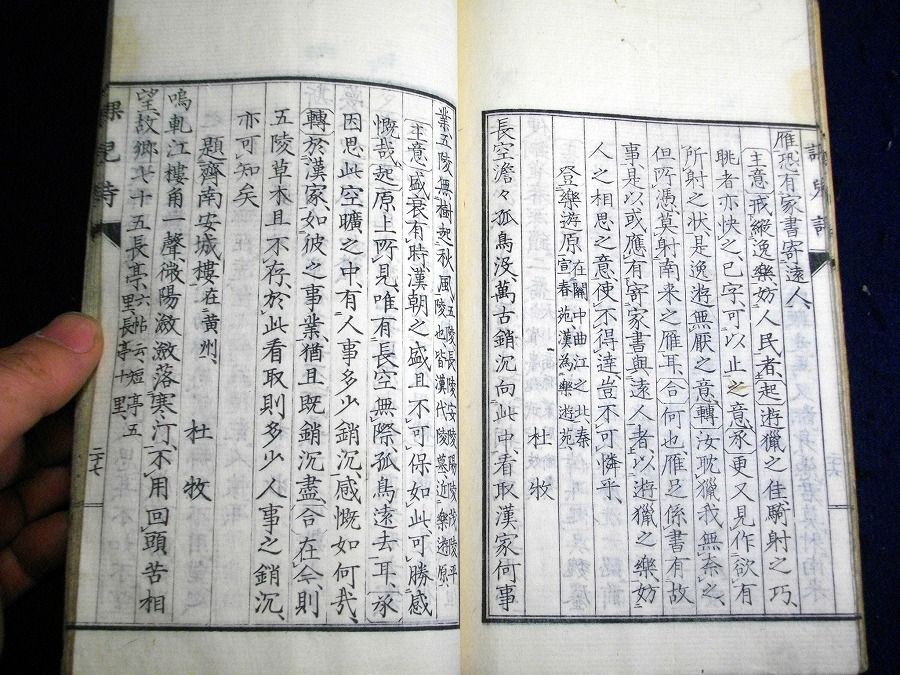 雁、恐有家書寄遠人、
主意、戒縱逸樂妨人民者、起、遊獵之佳、騎射之巧、
眺者亦快之、已字、可以止之意、承、更又見作、欲有
所射之状、是逸遊無厭之意、轉、汝耽獵、我無奈之、
但所憑、莫射南来之雁耳、合、何也、雁足係書有故
事、是以或應有寄家書與遠人者、以遊獵之樂、妨
人之相思之意、使不得達、豈不可憐乎、
登樂遊原 在關中曲江之北、秦宣春苑、漢為樂遊苑、 杜牧
長空澹々孤鳥没、萬古銷沉向此中、看取漢家何事
業、五陵無樹起秋風、五陵、長陵安陵陽陵茂陵平陵也、皆漢代陵墓、近樂遊原、
主意、盛衰有時、漢朝之盛、且不可保如此、可勝感
慨哉、起、原上所見、唯有長空無際、孤鳥遠去耳、承、
因思此空曠之中、有人事多少銷沉、感慨如何哉、
轉、於漢家、如彼之事業、猶且既銷沉盡、合、在今、則
五陵草木且不存、於此看取、則多少人事之銷沉、
亦可知矣、
題齊南安城樓、在黄州、 杜牧
嗚軋江樓角一聲、微陽瀲瀲落寒汀、不用回頭苦相
望、故郷七十五長亭、六帖云、短亭五里、長亭十里、
課兒詩
二十七